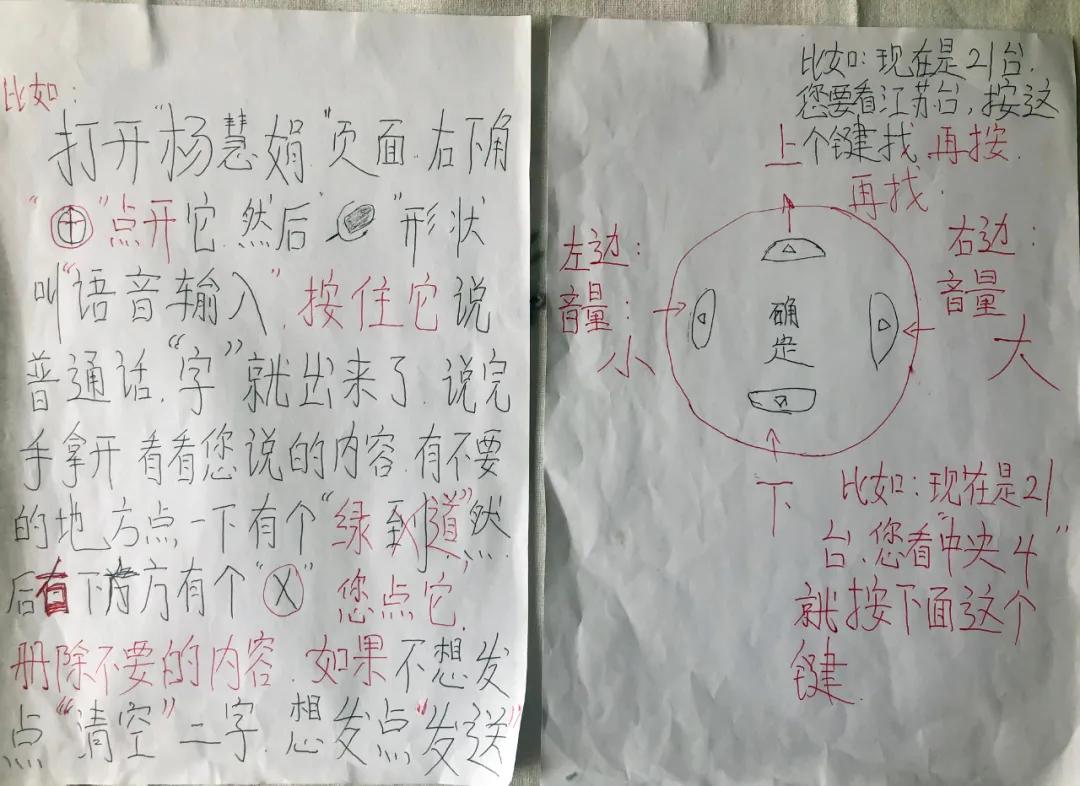 比如:
打开“杨慧娟”页面.右下角
“⊕”点开它.然后“ ”形状
叫“语音输入”.按住它说
普通话.“字”就出来了.说完
手拿开 看看您说的内容.有不要
的地方点一下有个“绿到道”然
后右下方有个“X” 您点它,
删除不要的内容.如果不想发
点“清空”二字.想发点“发送”
比如:现在是21台.
您要看江苏台,按这
上个键找.再按.
再找.
左边:
音量:
小
右边:
音量
大
确定
下
比如:现在是21
台.您看“中央4”
就按下面这个
键.